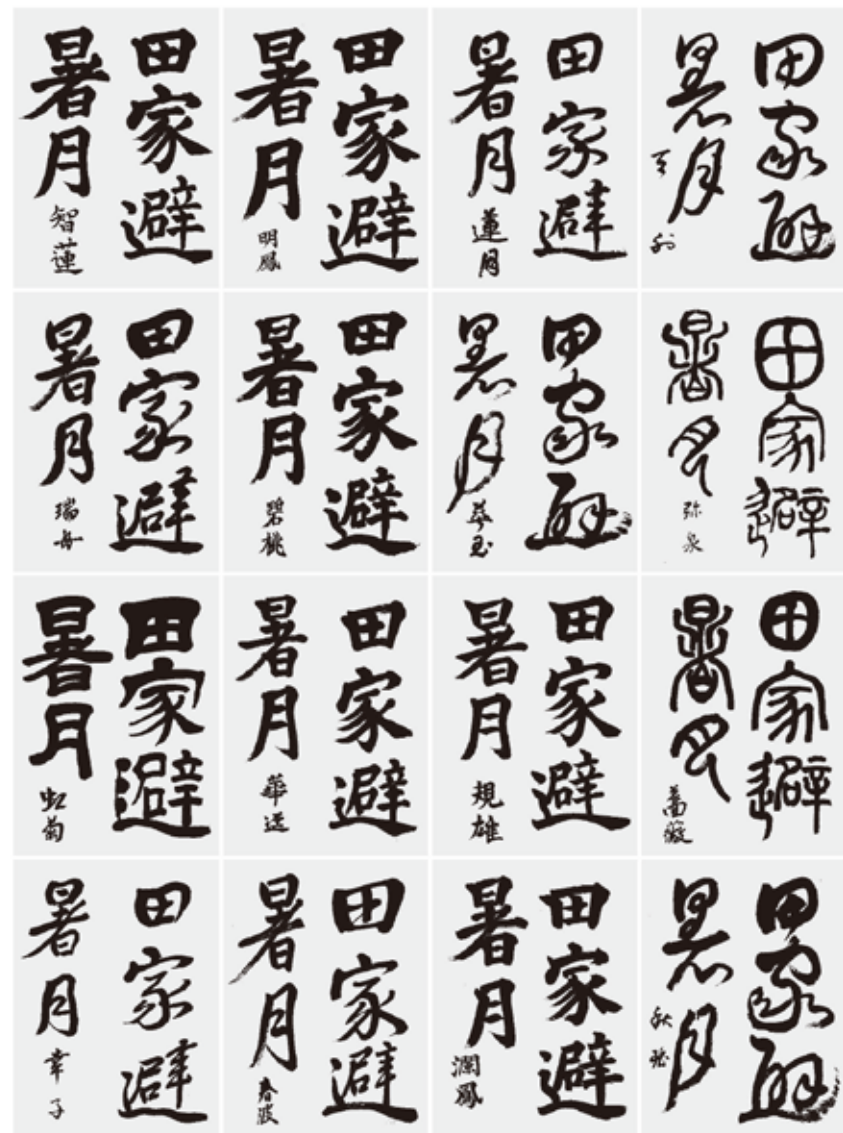 田家避
暑月
智蓮
田家避
暑月
明鳳
田家避
暑月
蓮月
田家避
暑月
田家避
暑月
瑞舟
田家避
暑月
碧桃
田家避
暑月
翠玉
田家避
暑月
弥泉
田家避
暑月
虹菊
田家避
暑月
華遥
田家避
暑月
規雄
田家避
暑月
薔薇
田家避
暑月
幸子
田家避
暑月
春波
田家避
暑月
瀾鳳
田家避
暑月